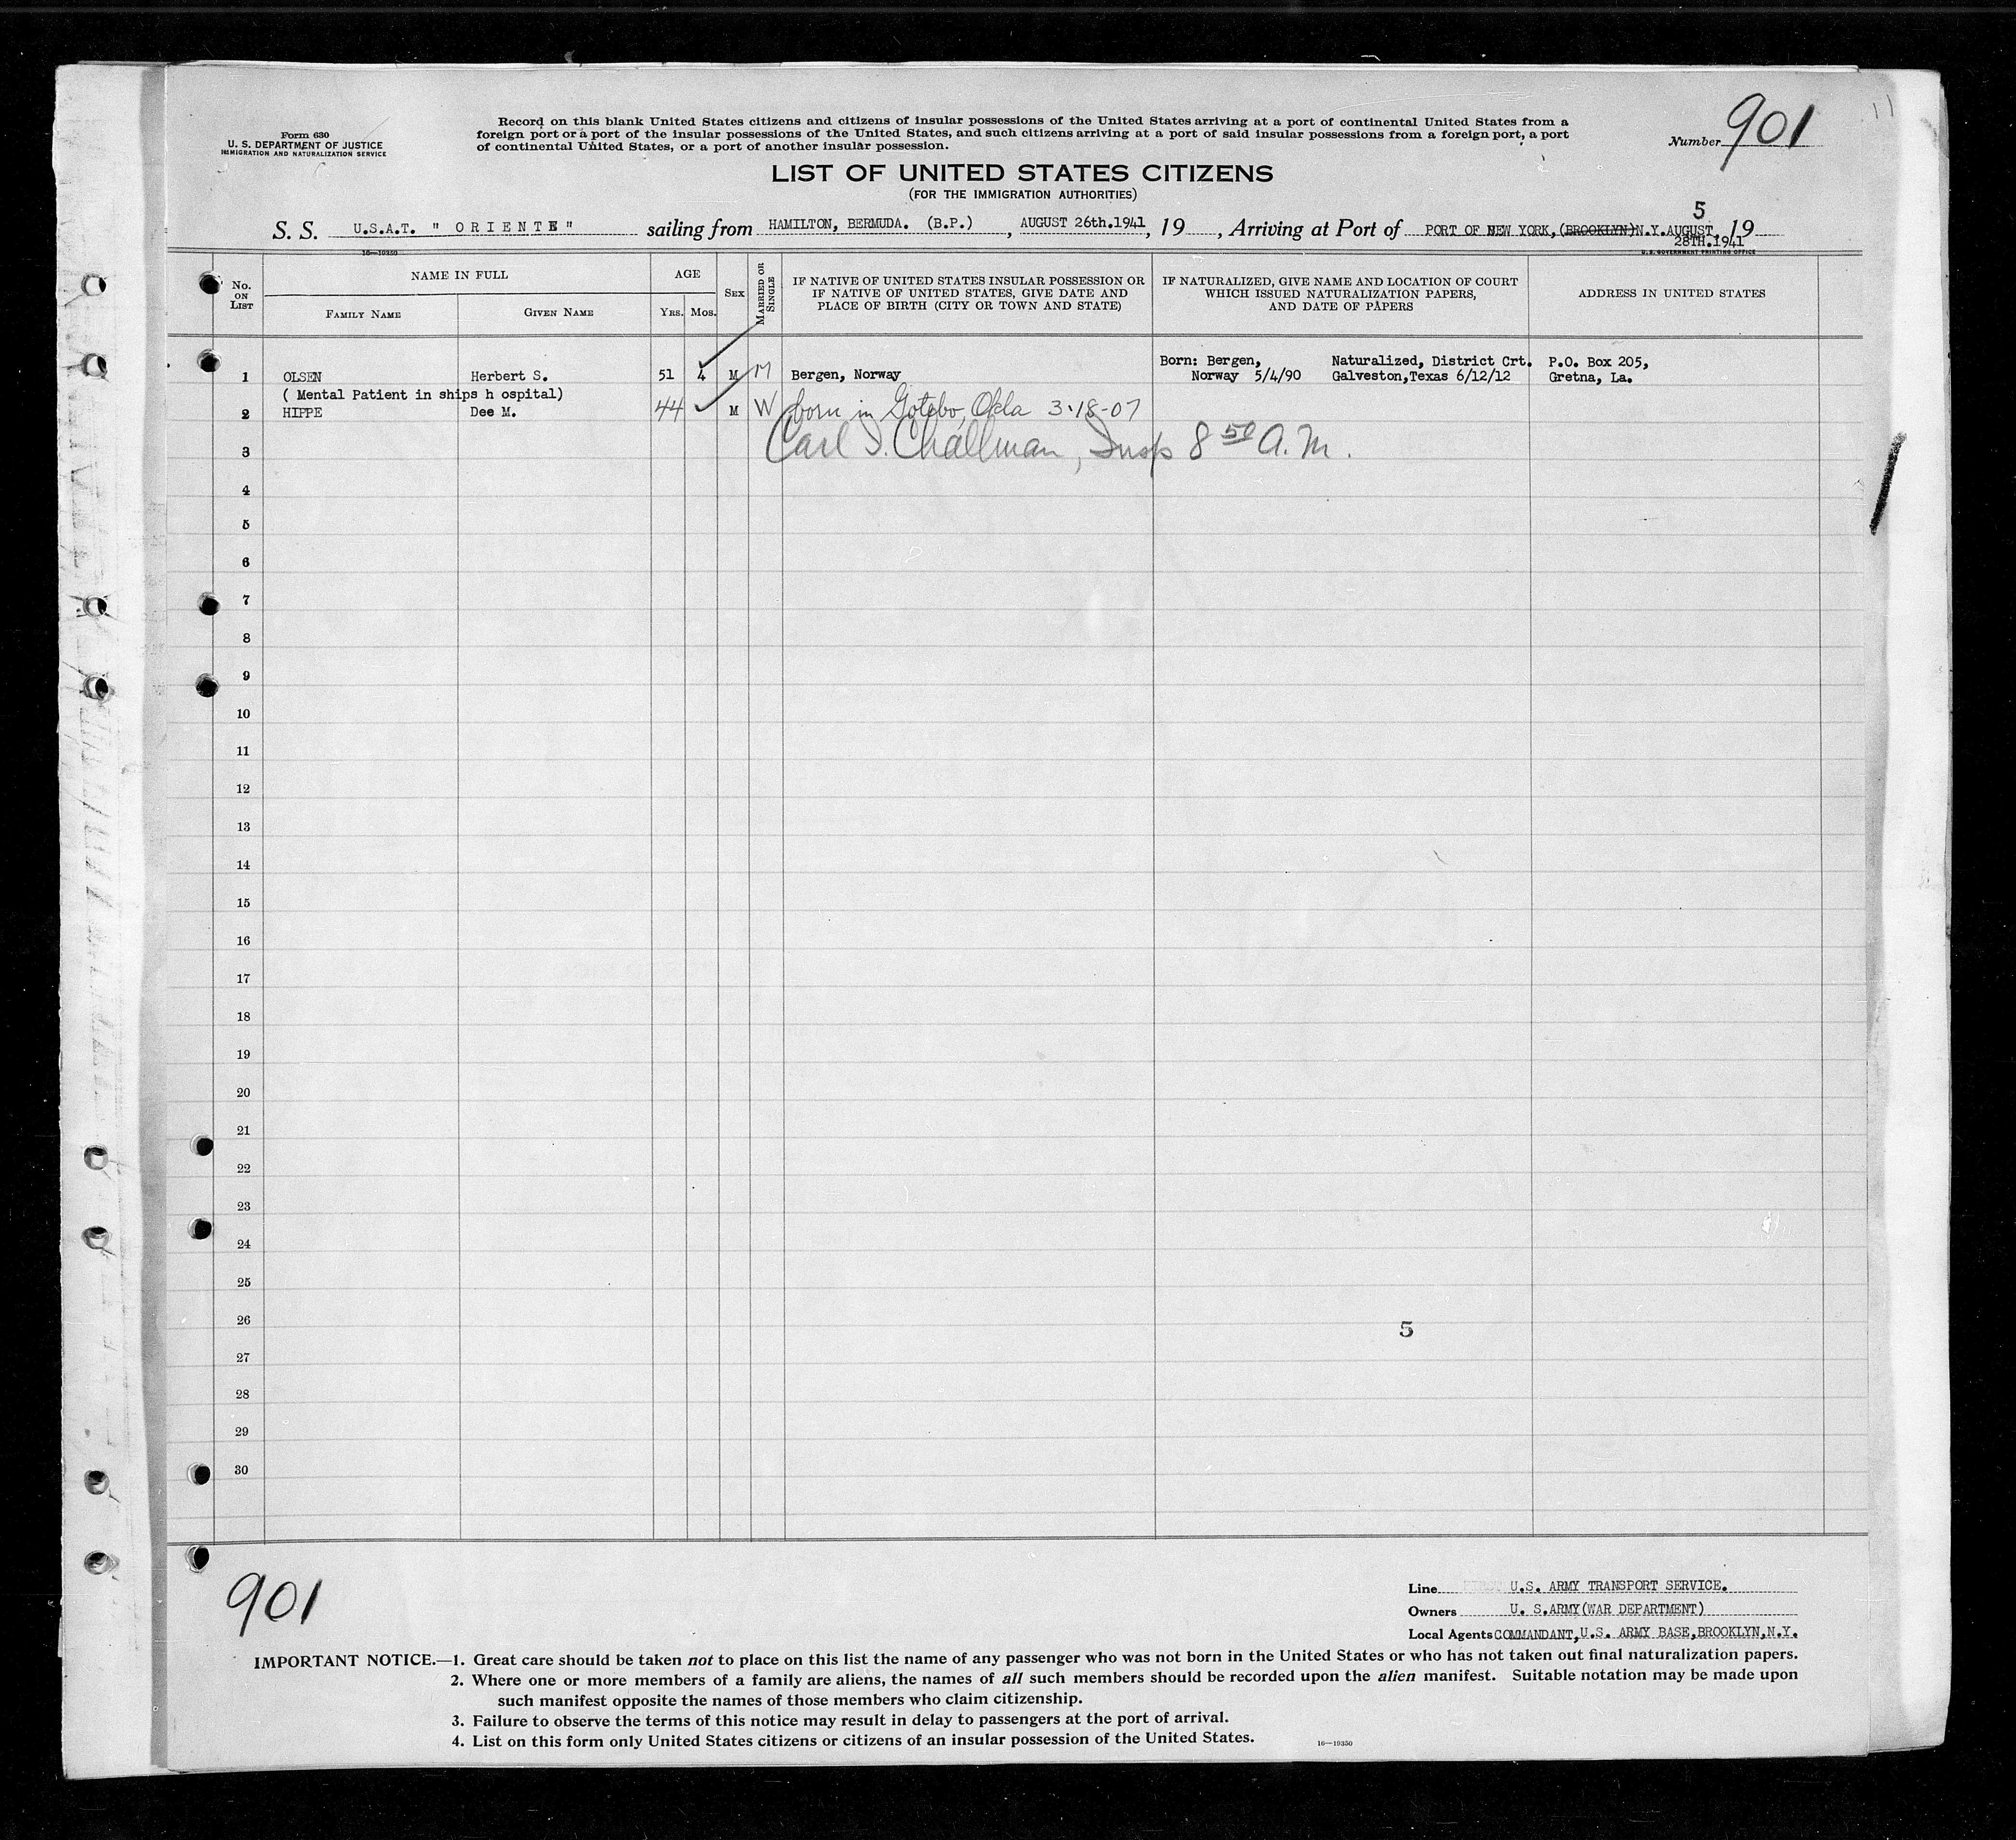 Form 630
U. S. DEPARTMENT OF JUSTICE
IMMIGRATION AND NATURALIZATION SERVICE
Record on this blank United States citizens and citizens of insular possessions of the United States arriving at a port of continental United States from a
foreign port or a port of the insular possessions of the United States, and such citizens arriving at a port of said insular possessions from a foreign port, a port
of continental United States, or a port of another insular possession.
Number 901
LIST OF UNITED STATES CITIZENS
(FOR THE IMMIGRATION AUTHORITIES)
5
S. S. U.S.A.T. " O R I E N T E " sailing from HAMILTON, BERMUDA. (B.P.) , AUGUST 26th.1941, 19 , Arriving at Port of PORT OF NEW YORK,(BROOKLYN)N.Y.AUGUST. 19
28TH.1941
16—19350
U. S. GOVERNMENT PRINTING OFFICE
No. ON LIST
NAME IN FULL
FAMILY NAME
GIVEN NAME
AGE
YRS.
MOS.
SEX
MARRIED OR SINGLE
IF NATIVE OF UNITED STATES INSULAR POSSESSION OR
IF NATIVE OF UNITED STATES, GIVE DATE AND
PLACE OF BIRTH (CITY OR TOWN AND STATE)
IF NATURALIZED, GIVE NAME AND LOCATION OF COURT
WHICH ISSUED NATURALIZATION PAPERS,
AND DATE OF PAPERS
ADDRESS IN UNITED STATES
Born: Bergen, Naturalized, District Crt. P.O. Box 205,
1 OLSEN Herbert S. 51 4 M M Bergen, Norway Norway 5/4/90 Galveston,Texas 6/12/12 Gretna, La.
( Mental Patient in ships h ospital)
2 HIPPE Dee M. 44 M W born in Gotebo, Okla 3-18-07
3 Carl I. Challman, Insp 8 50 A.M.
4
5
6
7
8
9
10
11
12
13
14
15
16
17
18
19
20
21
22
23
24
25
26
5
27
28
29
30
901
Line U.S. ARMY TRANSPORT SERVICE.
Owners U. S.ARMY(WAR DEPARTMENT)
Local Agents COMMANDANT,U.S. ARMY BASE,BROOKLYN,N.Y.
IMPORTANT NOTICE.—1. Great care should be taken not to place on this list the name of any passenger who was not born in the United States or who has not taken out final naturalization papers.
2. Where one or more members of a family are aliens, the names of all such members should be recorded upon the alien manifest. Suitable notation may be made upon
such manifest opposite the names of those members who claim citizenship.
3. Failure to observe the terms of this notice may result in delay to passengers at the port of arrival.
4. List on this form only United States citizens or citizens of an insular possession of the United States.
16—19350